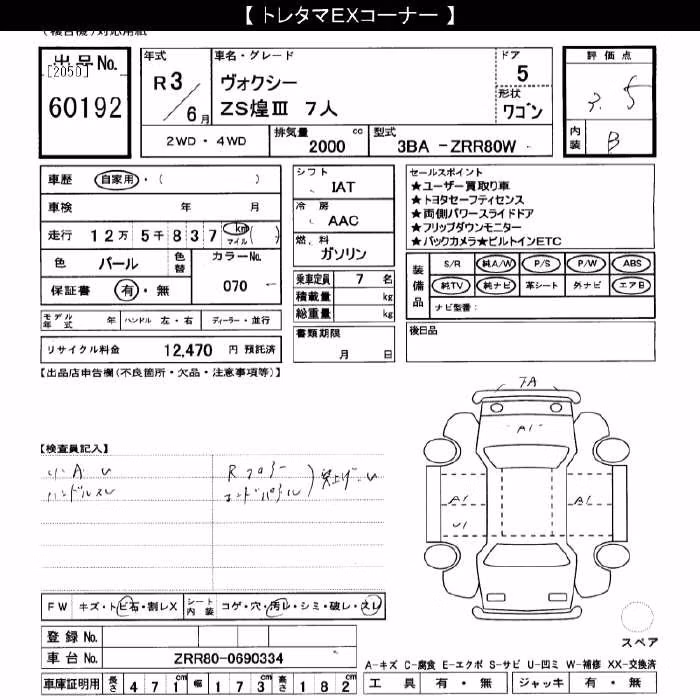 【 トレタマEXコーナー 】
出品No.
[2050]
60192
年式
R3/6月
車名・グレード
ヴォクシー
ZS煌Ⅲ 7人
ドア
5
形状
ワゴン
2WD・4WD
排気量 2000 cc
型式 3BA -ZRR80W
評価点
3.5
内装 B
車歴 自家用・( )
車検 年 月
走行 12万5千837 km マイル ( )
色 パール 色替
カラーNo. 070
保証書 有・無
モデル年式 年 ハンドル 左・右 ディーラー・並行
リサイクル料金 12,470 円 預託済
シフト
IAT
冷房
AAC
燃料
ガソリン
乗車定員 7 名
積載量 kg
総重量 kg
書類期限
月 日
セールスポイント
★ユーザー買取り車
★トヨタセーフティセンス
★両側パワースライドドア
★フリップダウンモニター
★バックカメラ★ビルトインETC
装備品
S/R 純A/W P/S P/W ABS
純TV 純ナビ 革シート 外ナビ エアB
ナビ型番:
後日品
【出品店申告欄(不良箇所・欠品・注意事項等)】
【検査員記入】
小A U
ハンドルスレ
Rフロアー
エンドパネル
突上げ U
7A
A1
A1
U1
A1
FW キズ・トビ石・割レX
シート内装 コゲ・穴・汚レ・シミ・破レ・スレ
登録No.
車台No. ZRR80-0690334
車庫証明用 長さ 471cm 幅 173cm 高さ 182cm
スペア
A-キズ C-腐食 E-エクボ S-サビ U-凹ミ W-補修 XX-交換済
工具 有・無 ジャッキ 有・無